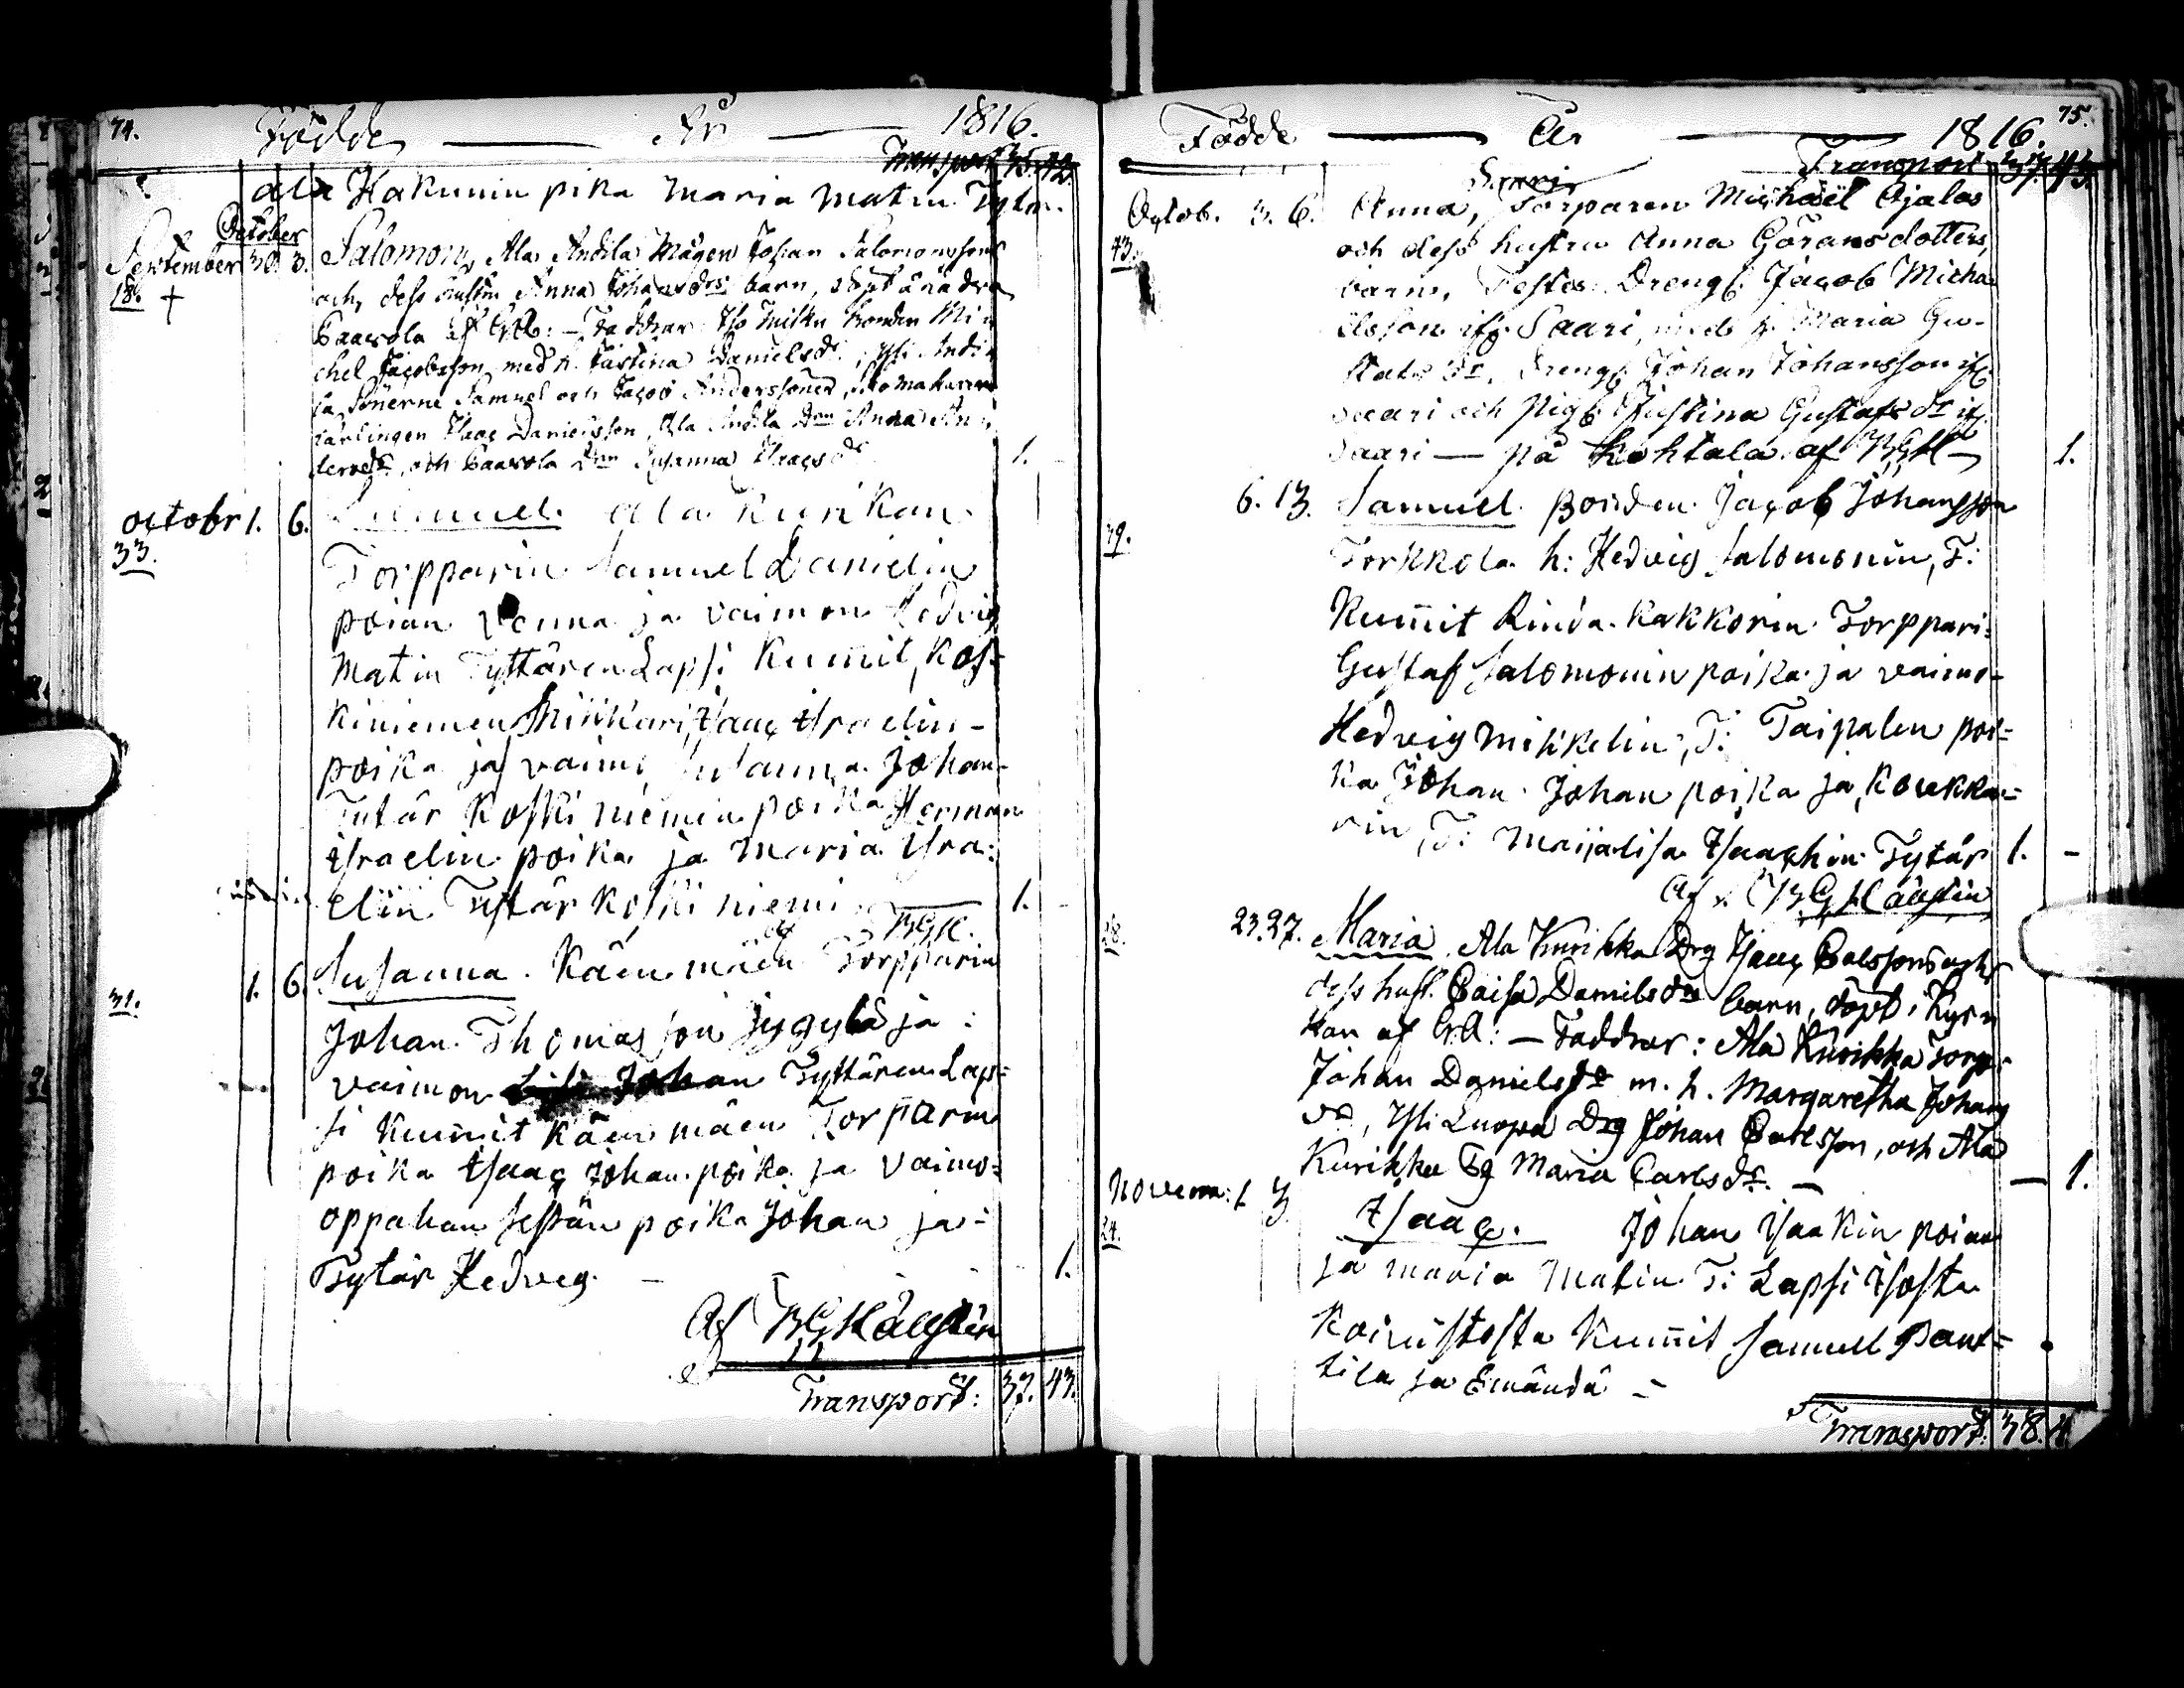 74. Födde År 1816.
Transport 35. 42.
ala Hakunin pika Maria Matin Tytär.
October
September 30. 3. Salomon, Ala Andila Mågen Johan Salomonssons
18. + och dess hustru Anna Johansdrs barn, döpt å nådra
Paavola af CrA: - Faddrar: Iso Miku bonden Mi
chel Jacobsson med h. Justina Danielsdr, Yli Andi
la Sönerne Samuel och Jacob Anderssöner,
Isaac Danielsson, Ala Andila Drn Anna An
dersdr, och Paavola Drn Susanna Isaacsdr 1. -
Octobr 1. 6. Samuel. ala Kurikan
33. Torpparin Samuel Danielin
poian Venna ja vaimon Hedvig
Matin Tyttären Lapsi Kumit, Kos=
kiniemen Isaac Israelin-
poika ja vaimo Susanna Johan-
Tytär Koskiniemen poika Herman
Israelin poika ja Maria Isra:
elin Tytär Koskiniemi 1. -
af BGK.
1. 6. Susanna. Käenmäen Torpparin
31. Johan Thomasson Jygylä ja:
vaimon Johan Tyttären Lap=
si Kumit Käenmäen Torparin
poika Isaac Johan poika ja vaimo=
oppahan Seppän poika Johan ja-
Tytär Hedveg. - 1.
Af BGKällström
Transport: 37. 43.
75.
Födde År 1816.
Transport 37. 43.
Saari
Octob. 3. 6. Anna, Torparen Michaël Ojalas
43. och dess hustru Anna Göransdotters,
barn, Testes: Drengs. Jacob Micha
elsson ifr. Saari, med h. Maria Gu-
stafs dr, Drengs. Johan Johansson ifr.
Saari och Pigs. Justina Gustafs dr ifr.
Saari — på Kohtala af BGK 1.
6. 13. Samuel. Bonden Jacob Johansson
39. Torkkola h: Hedvig Salomonin, T:
Kumit Rinda Kakkorin Torppari=
Gustaf Salomonin poika ja vaimo-
Hedveig Mikkelin, T: Taipalen poi=
ka Johan Johan poika ja Koukka=
rin, T: Maijalisa Isaachin Tytär 1. -
Af BGKällström
23. 27. Maria. Ala Kurikka Drg Isaac Carlssons och
28. dess hust. Caisa Danielsdrs barn, döpt i Kyr
kan af CrA: - Faddrar: Ala Kurikka Torp.
Johan Danielss m. h. Margaretha Johans
dr, Yli Luopa Drg Johan Carlsson, och Ala
Kurikka Pg Maria Carlsdr. - 1.
Novem: 1 3 Isaac. Johan Isaakin poian
24. ja Maria Matin T: Lapsi Isosta
Koivistosta Kumit Samuel Pant=
tila ja Emändä -
Transport: 38. 4